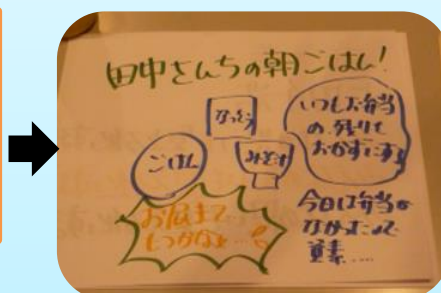 田中さんちの朝ごはん!
なっとう
ごはん
みそ汁
いつもお弁当
の残りを
おかずにする
お昼まで
もつかなぁ…
今日は弁当が
なかったので
質素……